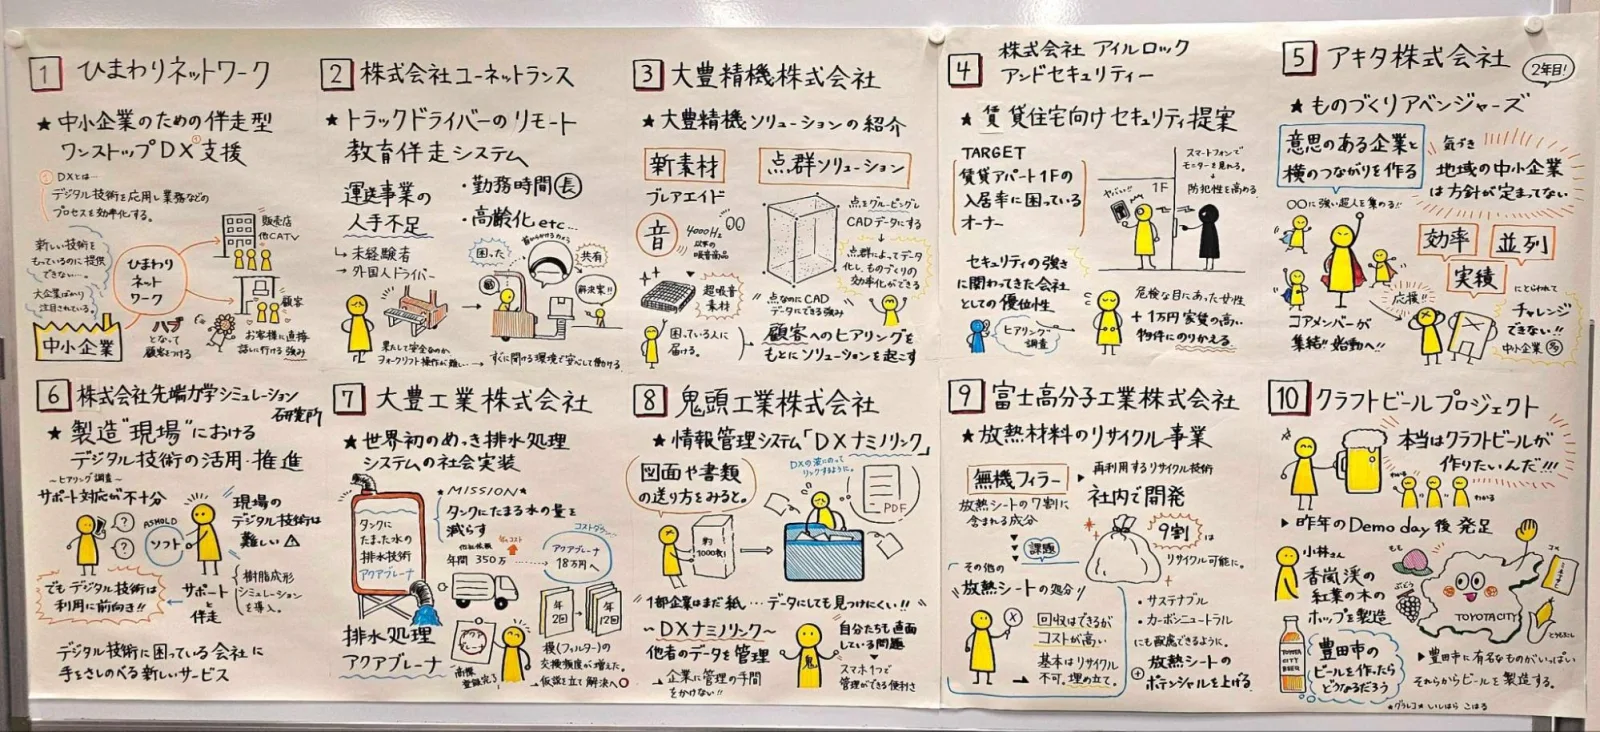 1 ひまわりネットワーク
★ 中小企業のための伴走型
ワンストップDX支援
DXとは…
デジタル技術を応用し業務などの
プロセスを効率化する。
新しい技術を
もっているのに提供
できない…。
大企業ばかり
注目されている。
中小企業
ひまわり
ネット
ワーク
販売店
他CATV
顧客
ハブ
となって
顧客をつける
お客様に直接
話しに行ける強み
2 株式会社ユーネットランス
★ トラックドライバーのリモート
教育伴走システム
運送事業の
人手不足
・勤務時間 長
・高齢化 etc…
↳ 未経験者
→ 外国人ドライバー
困った…
共有
解決案!!
果たして安全なのか
フォークリフト操作が難しい…
→ すぐに聞ける環境で安心して働ける
3 大豊精機株式会社
★ 大豊精機ソリューションの紹介
新素材
ブレアエイド
音
4000Hz
以下の
吸音商品
超吸音
素材
困っている人に
届ける。
点群ソリューション
点をグルーピングし
CADデータにする
点群によってデータ
化し、ものづくりの
効率化ができる
点なのにCAD
データにできる強み
顧客へのヒアリングを
もとにソリューションを起こす
4 株式会社 アイルロック
アンドセキュリティー
★ 賃貸住宅向けセキュリティ提案
TARGET
賃貸アパート1Fの
入居率に困っている
オーナー
ヤバい!!
1F
スマートフォンで
モニターを見れる。
防犯性を高める
セキュリティの強さ
に関わってきた会社
としての優位性
ヒアリング・
調査
危険な目にあった女性
+1万円家賃の高い
物件にのりかえる
5 アキタ株式会社
2年目!
★ ものづくりアベンジャーズ
意思のある企業と
横のつながりを作る
気づき
地域の中小企業
は方針が定まってない
○○に強い超人を集める!!
効率
並列
実積
にとらわれて
チャレンジ
できない!!
中小企業 多
応援!!
コアメンバーが
集結!! 始動へ!!
6 株式会社先端力学シミュレーション
研究所
★ 製造"現場"における
デジタル技術の活用・推進
~ヒアリング調査~
サポート対応が不十分
現場の
デジタル技術は
難しい
ASMOLD
ソフト
でもデジタル技術は
利用に前向き!!
サポート
と
伴走
樹脂成形
シミュレーション
を導入。
デジタル技術に困っている会社に
手をさしのべる新しいサービス
7 大豊工業株式会社
★ 世界初のめっき排水処理
システムの社会実装
★MISSION★
タンクにたまる水の量を
減らす
タンクに
たまった水の
排水技術
アクアブレーナ
年間 350万
コストダウン
アクアブレーナ
18万円へ
年
2回
年
12回
排水処理
アクアブレーナ
膜(フィルター)の
交換頻度が増えた。
→ 仮説を立て解決へ○
8 鬼頭工業株式会社
★ 情報管理システム「DXナミノリンク」
図面や書類
の送り方をみると。
DXの波にのって
リンクするように。
PDF
約
1000枚!
1部企業はまだ紙…データにしても見つけにくい!!
~DXナミノリンク~
他者のデータを管理
→ 企業に管理の手間
をかけない!!
鬼
自分たちも直面
している問題
スマホ1つで
管理ができる便利さ
9 富士高分子工業株式会社
★ 放熱材料のリサイクル事業
無機フィラー
放熱シートの7割に
含まれる成分
再利用するリサイクル技術
社内で開発
9割は
リサイクル可能に。
課題
その他の
放熱シートの処分
回収はできるが
コストが高い
基本はリサイクル
不可。埋め立て。
・サステナブル
・カーボンニュートラル
にも配慮できるように。
放熱シートの
ポテンシャルを上げる
10 クラフトビールプロジェクト
本当はクラフトビールが
作りたいんだ!!!
わかる
わかる
▶ 昨年のDemo day後発足
小林さん
香嵐渓の
紅葉の木の
ホップを製造
もも
ぶどう
コメ
とうもろこし
TOYOTACITY
TOYOTA
CITY
BEER
豊田市の
ビールを作ったら
どうなるだろう
▶ 豊田市に有名なものがいっぱい
それからビールを製造する。
★グラレコ★ いしはら こはる